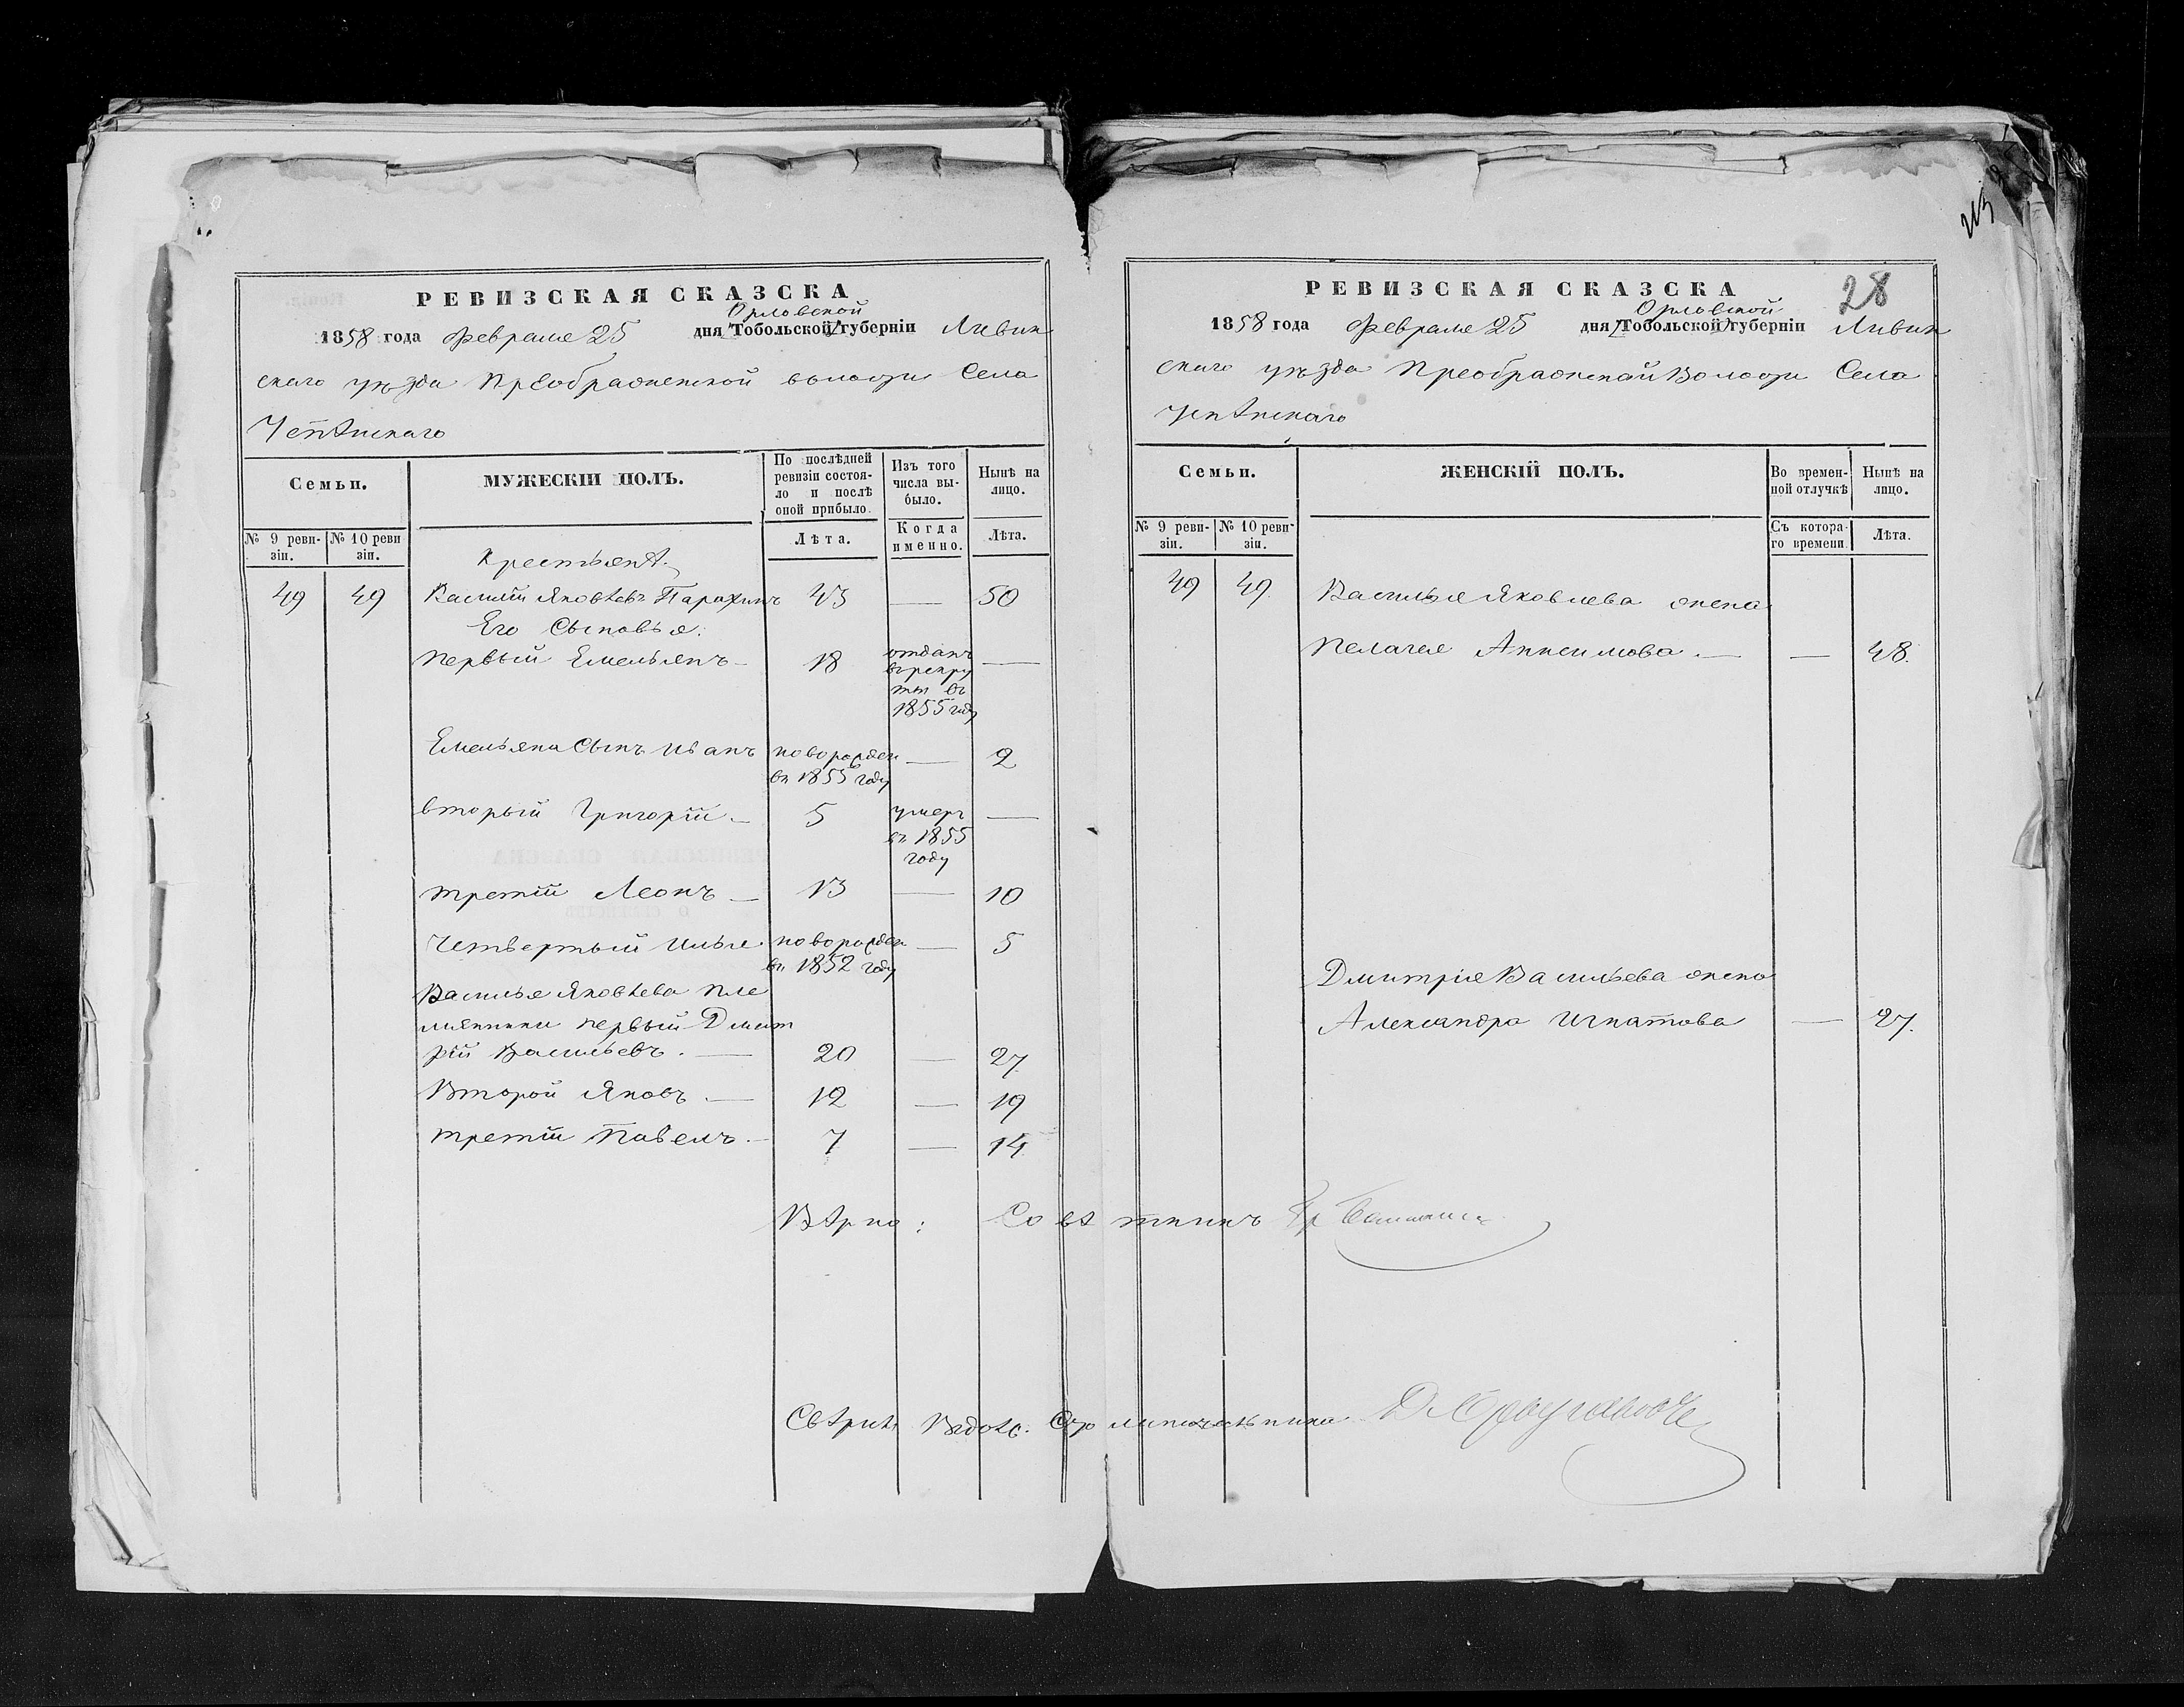 РЕВИЗСКАЯ СКАЗСКА
Орловской
1858 года Февраля 25 дня Тобольской губерніи Ливен
скаго уѣзда Преображенской волости Села
Успѣнскаго
Семьи.
МУЖЕСКІЙ ПОЛЪ.
По послѣдней ревизіи состояло и послѣ оной прибыло.
Изъ того числа выбыло.
Нынѣ на лицо.
№ 9 ревизіи.
№ 10 ревизіи.
Лѣта.
Когда именно.
Лѣта.
Крестьянѣ
49 49 Василій Яковлевъ Парахинъ 43 — 50
Его Сыновья:
первый Емельянъ — 18 отданъ —
врекру
ты въ
1855 году
Емельяна сынъ Иванъ новорожден — 2
въ 1855 году
вторый Григорій — 5 умеръ —
въ 1855
году
третій Леонъ — 13 — 10
четвертый Илья новорожден — 5
въ 1852 году
Василья Яковлева пле
мянники первый Дмит
рій Васильевъ. — 20 — 27
Второй Яковъ. — 12 — 19
третій Павелъ. — 7 — 14
Вѣрно: Совѣтникъ
Свѣрилъ
28
РЕВИЗСКАЯ СКАЗСКА
Орловской
1858 года Февраля 25 дня Тобольской губерніи Ливен
скаго уѣзда Преображенской Волости Села
Успѣнскаго
Семьи.
ЖЕНСКІЙ ПОЛЪ.
Во временной отлучкѣ
Нынѣ на лицо.
№ 9 ревизіи.
№ 10 ревизіи.
Съ котораго времени.
Лѣта.
49 49 Василья Яковлева жена
Пелагея Анисимова. — — 48.
Дмитрія Васильева жена
Александра Игнатова — 27.